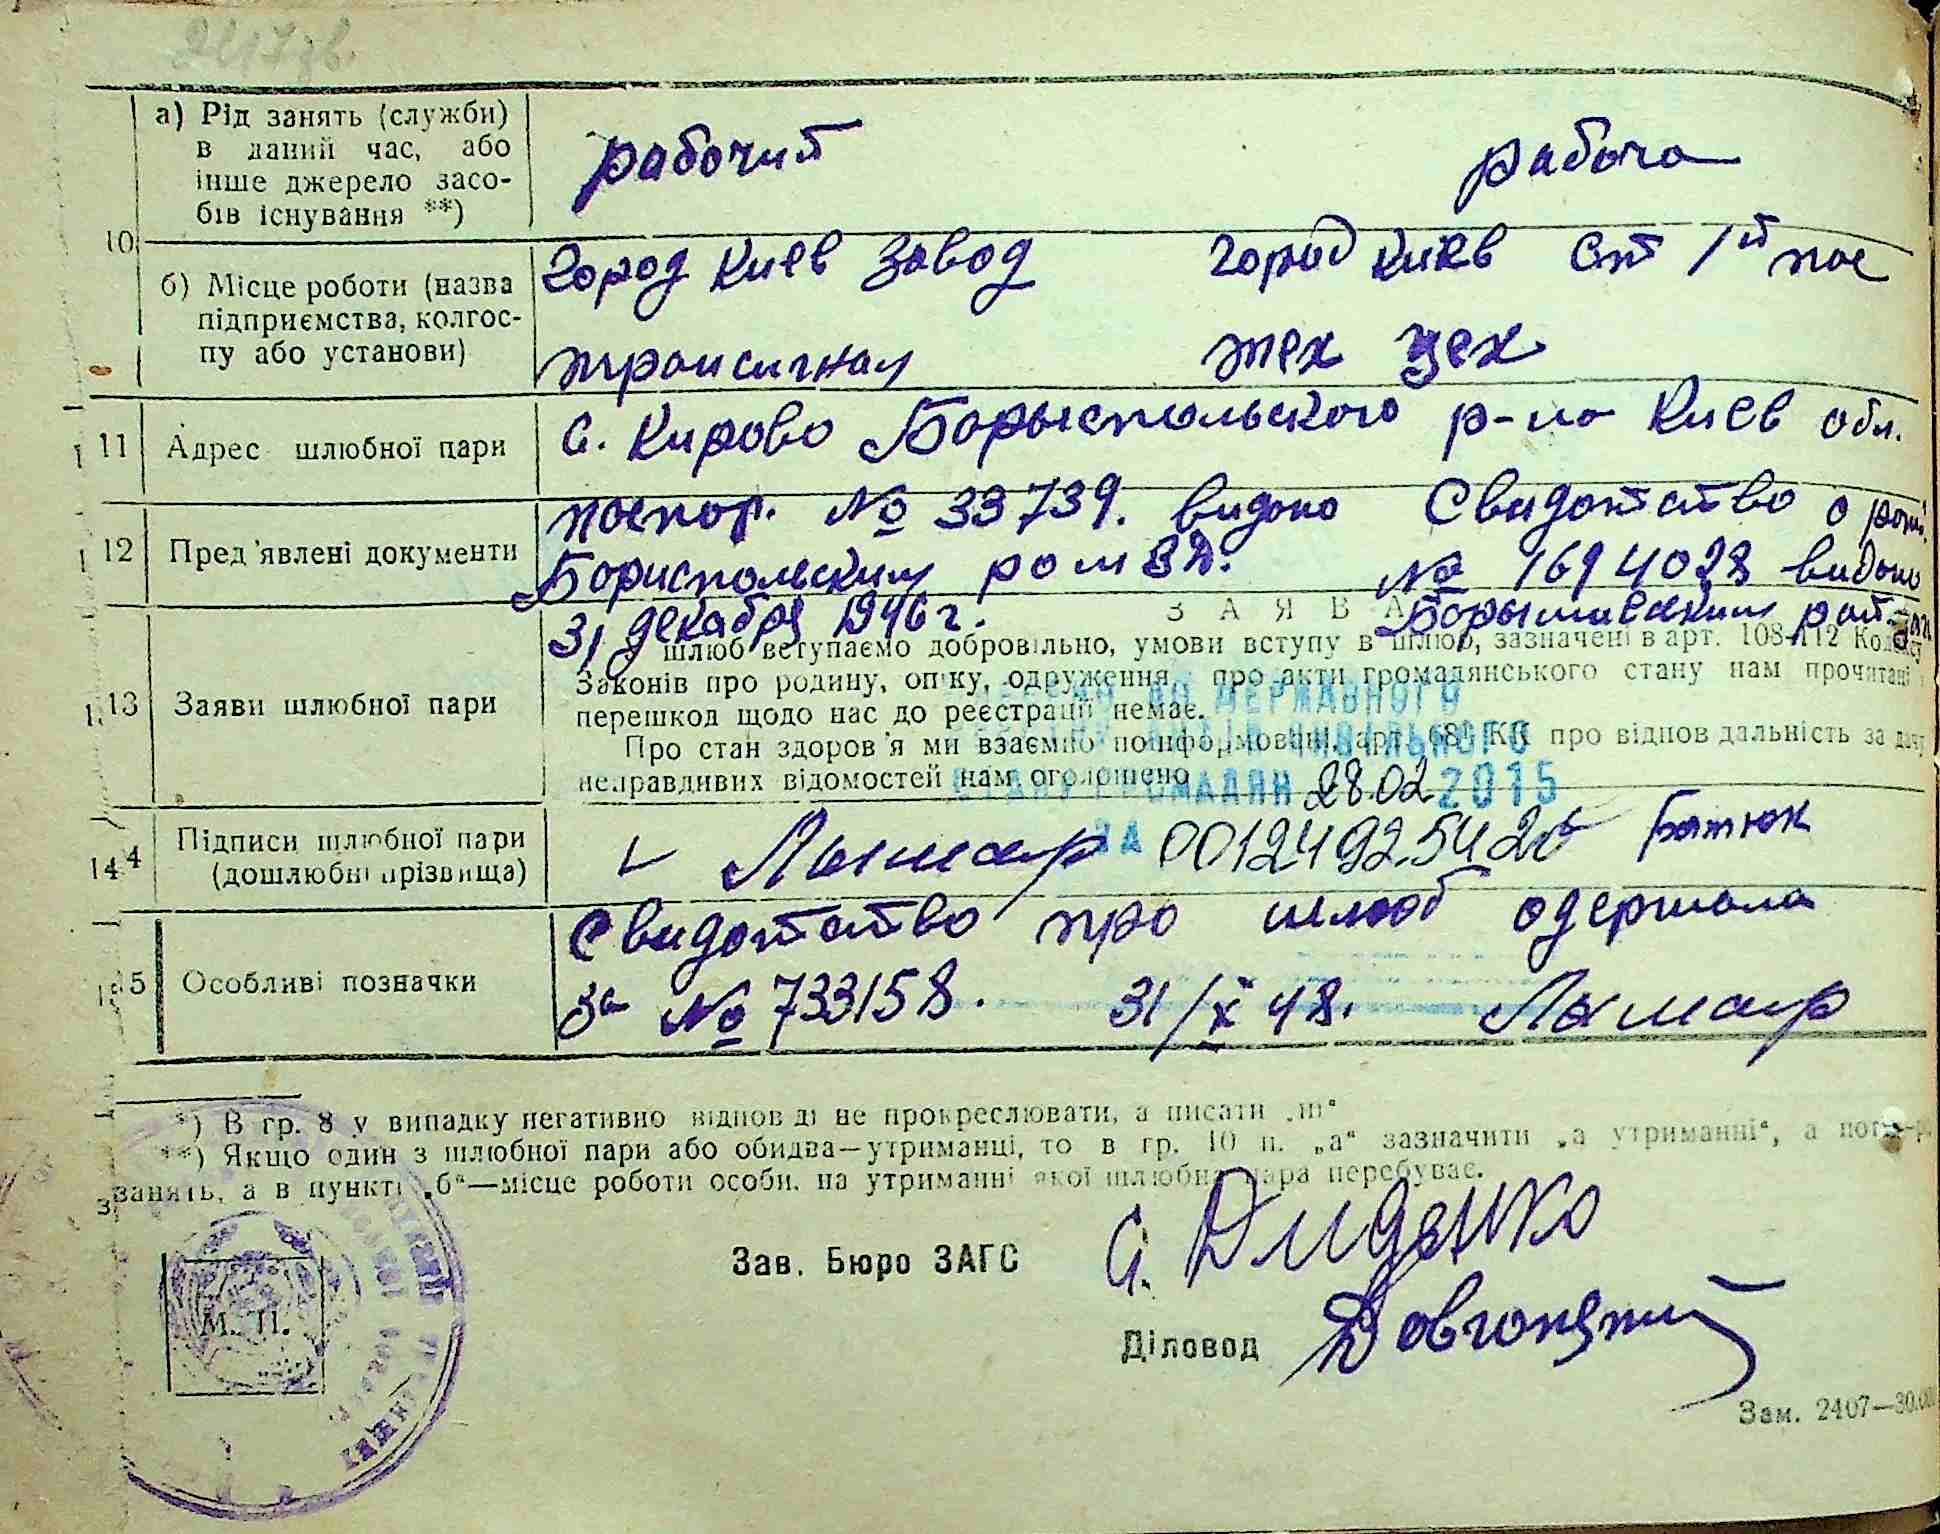 а) Рід занять (служби)
в даний час, або
інше джерело засо-
бів існування **)
рабочий
рабоча
10
б) Місце роботи (назва
підприємства, колгос-
пу або установи)
город Киев завод
транссигнал
город Киев ст 1й пос
тех цех
11 Адрес шлюбної пари
с. Кирово Борыспольского р-на Киев обл.
12 Пред'явлені документи
паспор. № 33739. видано
Бориспольским ром ЗД.
31 декабря 1946 г.
Свидотство о рож.
№ 1694028 видано
рай
ЗАЯВА
13 Заяви шлюбної пари
шлюб вступаємо добровільно, умови вступу в шлюб, зазначені в арт. 108-112 Кодексу
Законів про родину, опіку, одруження про акти громадянського стану нам прочитані
перешкод щодо нас до реєстрації немає.
Про стан здоров'я ми взаємно поінформовані, арт. 68 КК про відповідальність за дачу
неправдивих відомостей нам оголошено
ДО ДЕРЖАВНОГО
АКТІВ ЦИВІЛЬНОГО
СТАНУ ГРОМАДЯН 28.02 2015
ЗА 00124925426
14 Підписи шлюбної пари
(дошлюбні прізвища)
Лымар
Батюк
15 Особливі позначки
Свидотство про шлюб одержала
за № 733158. 31/X 48. Лымар
*) В гр. 8 у випадку негативно відповіді не прокреслювати, а писати „ні“
**) Якщо один з шлюбної пари або обидва—утриманці, то в гр. 10 п. „а“ зазначити „а утриманні“, а
занять, а в пункті „б“—місце роботи особи, на утриманні якої шлюбна пара перебуває.
М. П.
Зав. Бюро ЗАГС
С. Диденко
Діловод
Зам. 2407—30.00